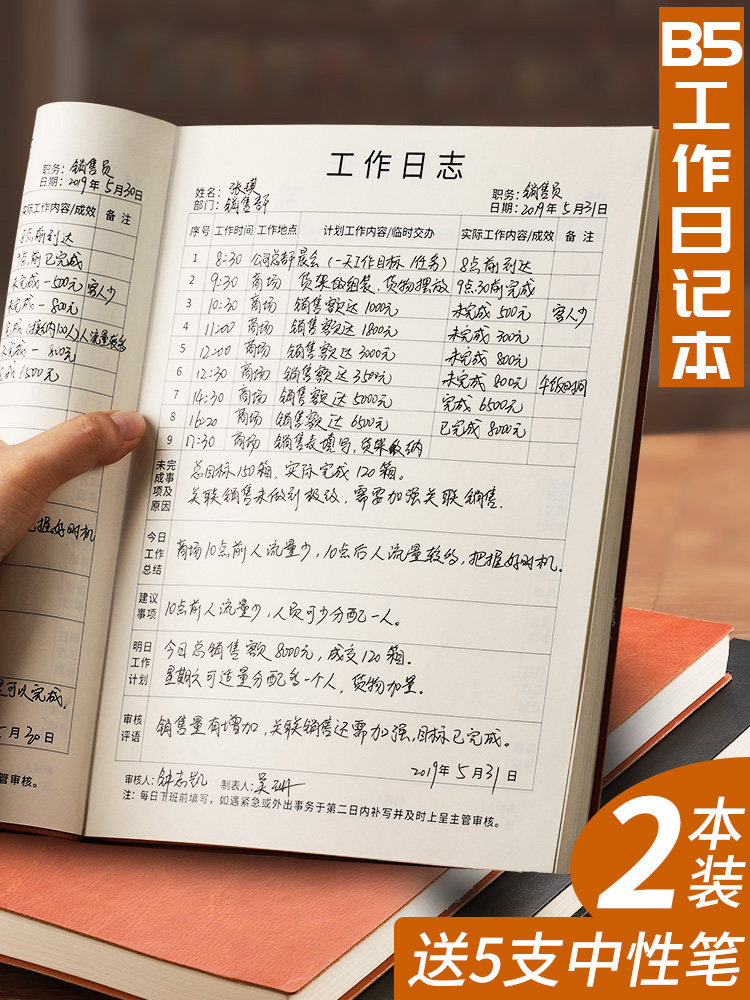 B5工作日记本
职务：销售员
日期：2019年5月30日
实际工作内容/成效 备注
8点前到达
9点前已完成
未完成-500元 客人少
未完成-800元
人流量较多
未完成-800元
完成1500元
把握好时机
可以完成，
5月30日
主管审核。
工作日志
姓名：张瑛 职务：销售员
部门：销售部 日期：2019年5月31日
序号 工作时间 工作地点 计划工作内容/临时交办 实际工作内容/成效 备注
1 8:30 公司总部晨会（一天工作目标/任务） 8点前到达
2 9:30 商场 货架的组装、货物摆放 9点30前完成
3 10:30 商场 销售额达1000元 未完成500元 客人少
4 11:00 商场 销售额达1800元 未完成300元
5 12:00 商场 销售额达3000元 未完成800元
6 12:30 商场 销售额达3500元 未完成800元 午饭时间
7 14:30 商场 销售额达5000元 完成6500元
8 16:20 商场 销售额达6500元 已完成8000元
9 17:30 商场 销售表填写，货架收纳
未完成事项及原因 总目标150箱，实际完成120箱。
关联销售未做到极致，需要加强关联销售.
今日工作总结 商场10点前人流量少，10点后人流量较多，把握好时机。
建议事项 10点前人流量少，人员可少分配一人。
明日工作计划 今日总销售额8000元，成交120箱。
星期六可适量分配多一个人，货物加量。
审核评语 销售量有增加，关联销售还需加强，目标已完成。
2019年5月31日
审核人：钟志凯 制表人：吴珊
注：每日下班前填写，如遇紧急或外出事务于第二日内补写并及时上呈主管审核。
2本装
送5支中性笔